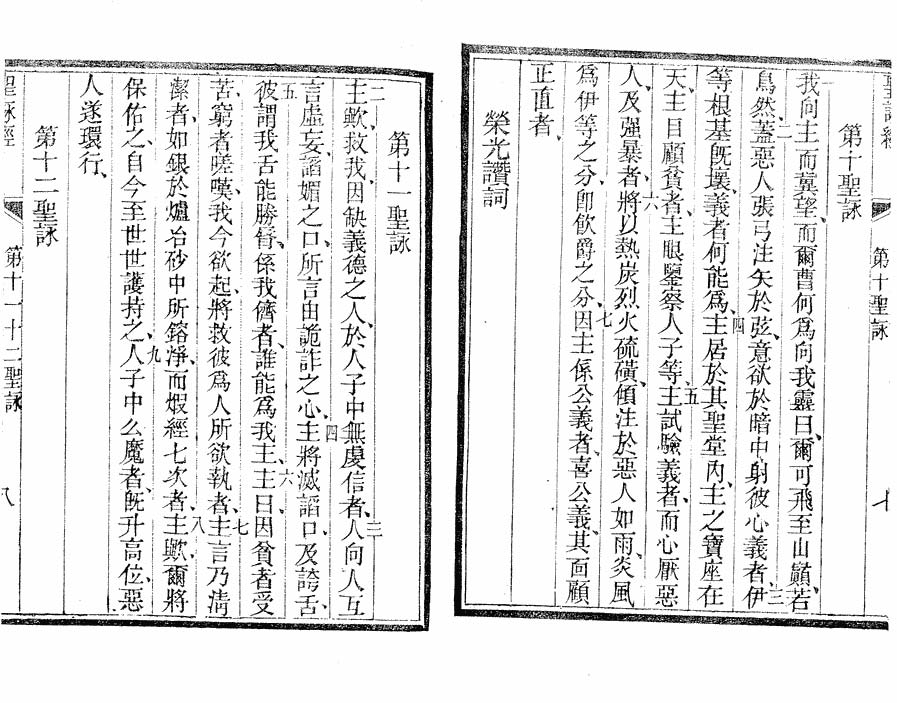 聖詠經
第十聖詠
七
第十聖詠
一我向主而冀望、而爾曹何爲向我靈曰、爾可飛至山巔、若
鳥然、二蓋惡人張弓注矢於弦、意欲於暗中射彼心義者、三伊
等根基旣壞、義者何能爲、四主居於其聖堂內、主之寶座在
天、主目顧貧者、主眼鑒察人子等、五主試驗義者、而心厭惡
人、及强暴者、六將以熱炭烈火硫磺、傾注於惡人如雨、炎風
爲伊等之分、卽飲爵之分、七因主係公義者、喜公義、其面顧
正直者、
榮光讚詞
第十一聖詠
二主歟、救我、因缺義德之人、於人子中無虔信者、三人向人互
言虛妄、謟媚之口、所言由詭詐之心、四主將滅謟口、及誇舌、
五彼謂我舌能勝、脣係我儕者、誰能爲我主、六主曰、因貧者受
苦、窮者嗟嘆、我今欲起、將救彼爲人所欲執者、七主言乃淸
潔者、如銀於爐、台砂中所鎔淨、而煅經七次者、八主歟、爾將
保佑之、自今至世世護持之、九人子中么魔者、旣升高位、惡
人遂環行、
第十二聖詠
聖詠經
第十一十二聖詠
八